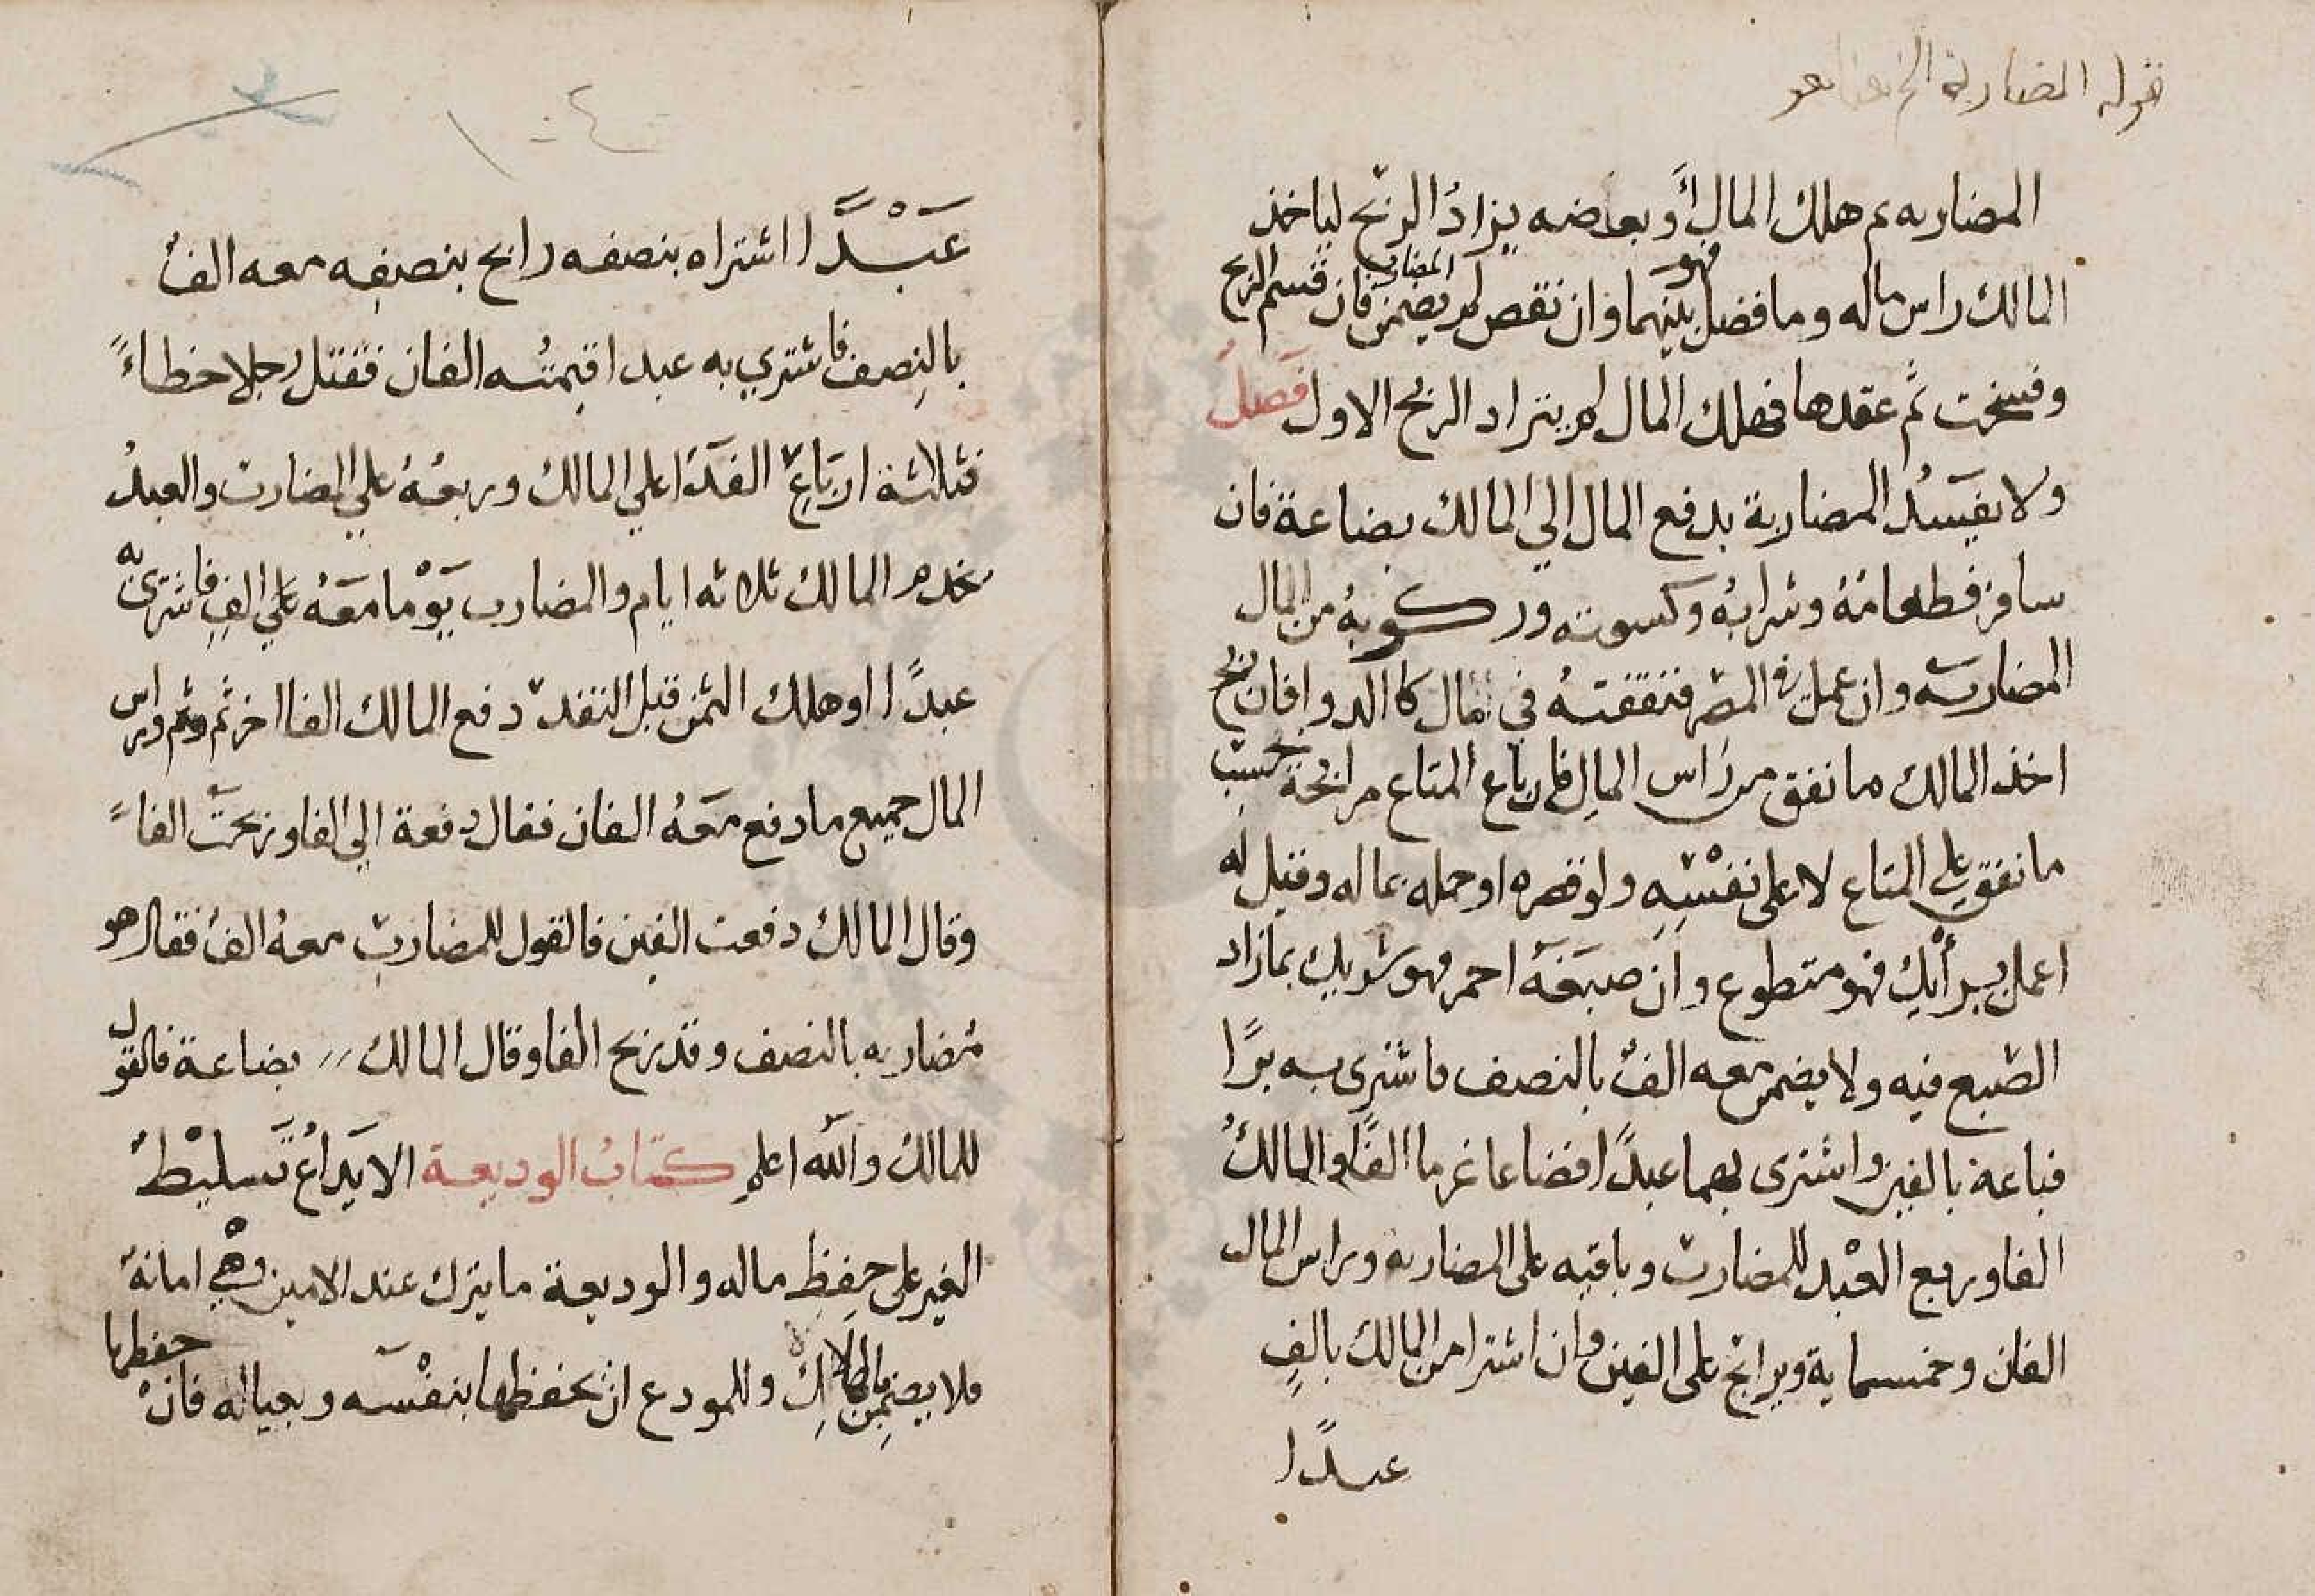 قوله المضاربة الخ
المضاربه ثم هلك المال أو بعضه يزاد الربح لياخذ
المالك راس ماله وما فضل فهو بينهما وان نقص لم يضمن المضارب فان قسم الربح
وفسخت ثم عقدها فهلك المال لم يتراد الربح الاول فصل
ولا يفسد المضاربة بدفع المال الي المالك بضاعة فان
سافر فطعامه وشرابه وكسوته وركوبه من المال
المضاربه وان عمل في المصر فنفقته في مال كالدوا فان ربح
اخذ المالك ما نفق من راس المال فان باع المتاع مرابحة بحسب
ما نفق علي المتاع لا على نفسه ولو قصره او حمله بماله وقيل له
اعمل برأيك فهو متطوع وان صبغه احمر فهو شريك بما زاد
الصبغ فيه ولا يضمن معه الف بالنصف فاشترى به بزا
فباعه بالفين واشترى بهما عبدا فضاعا غرما الفا والمالك
الفا وربع العبد للمضارب وباقيه على المضاربه وراس المال
الفان وخمسماية ويرابح على الفين وان اشترا من المالك بالف
عبدا
١٠٤
عبدا اشتراه بنصفه رابح بنصفه معه الف
بالنصف فاشتري به عبدا قيمته الفان فقتل رجلا خطاء
فثلاثة ارباع الفدا علي المالك وربعه علي المضارب والعبد
يخدم المالك ثلاثه ايام والمضارب يوما معه علي الف فاشترى به
عبدا او هلك الثمن قبل النقد دفع المالك الفا اخر ثم وثم وراس
المال جميع ما دفع معه الفان فقال دفعة الي الفا وربحت الفا
وقال المالك دفعت الفين فالقول للمضارب معه الف فقال هو
مضاربه بالنصف وقد ربح الفا وقال المالك بضاعة فالقول
للمالك والله اعلم كتاب الوديعة الايداع تسليط
الغير على حفظ ماله والوديعة ما يترك عند الامين وهي امانة
فلا يضمن بالهلاك وللمودع ان يحفظها بنفسه وبعياله فان حفظها